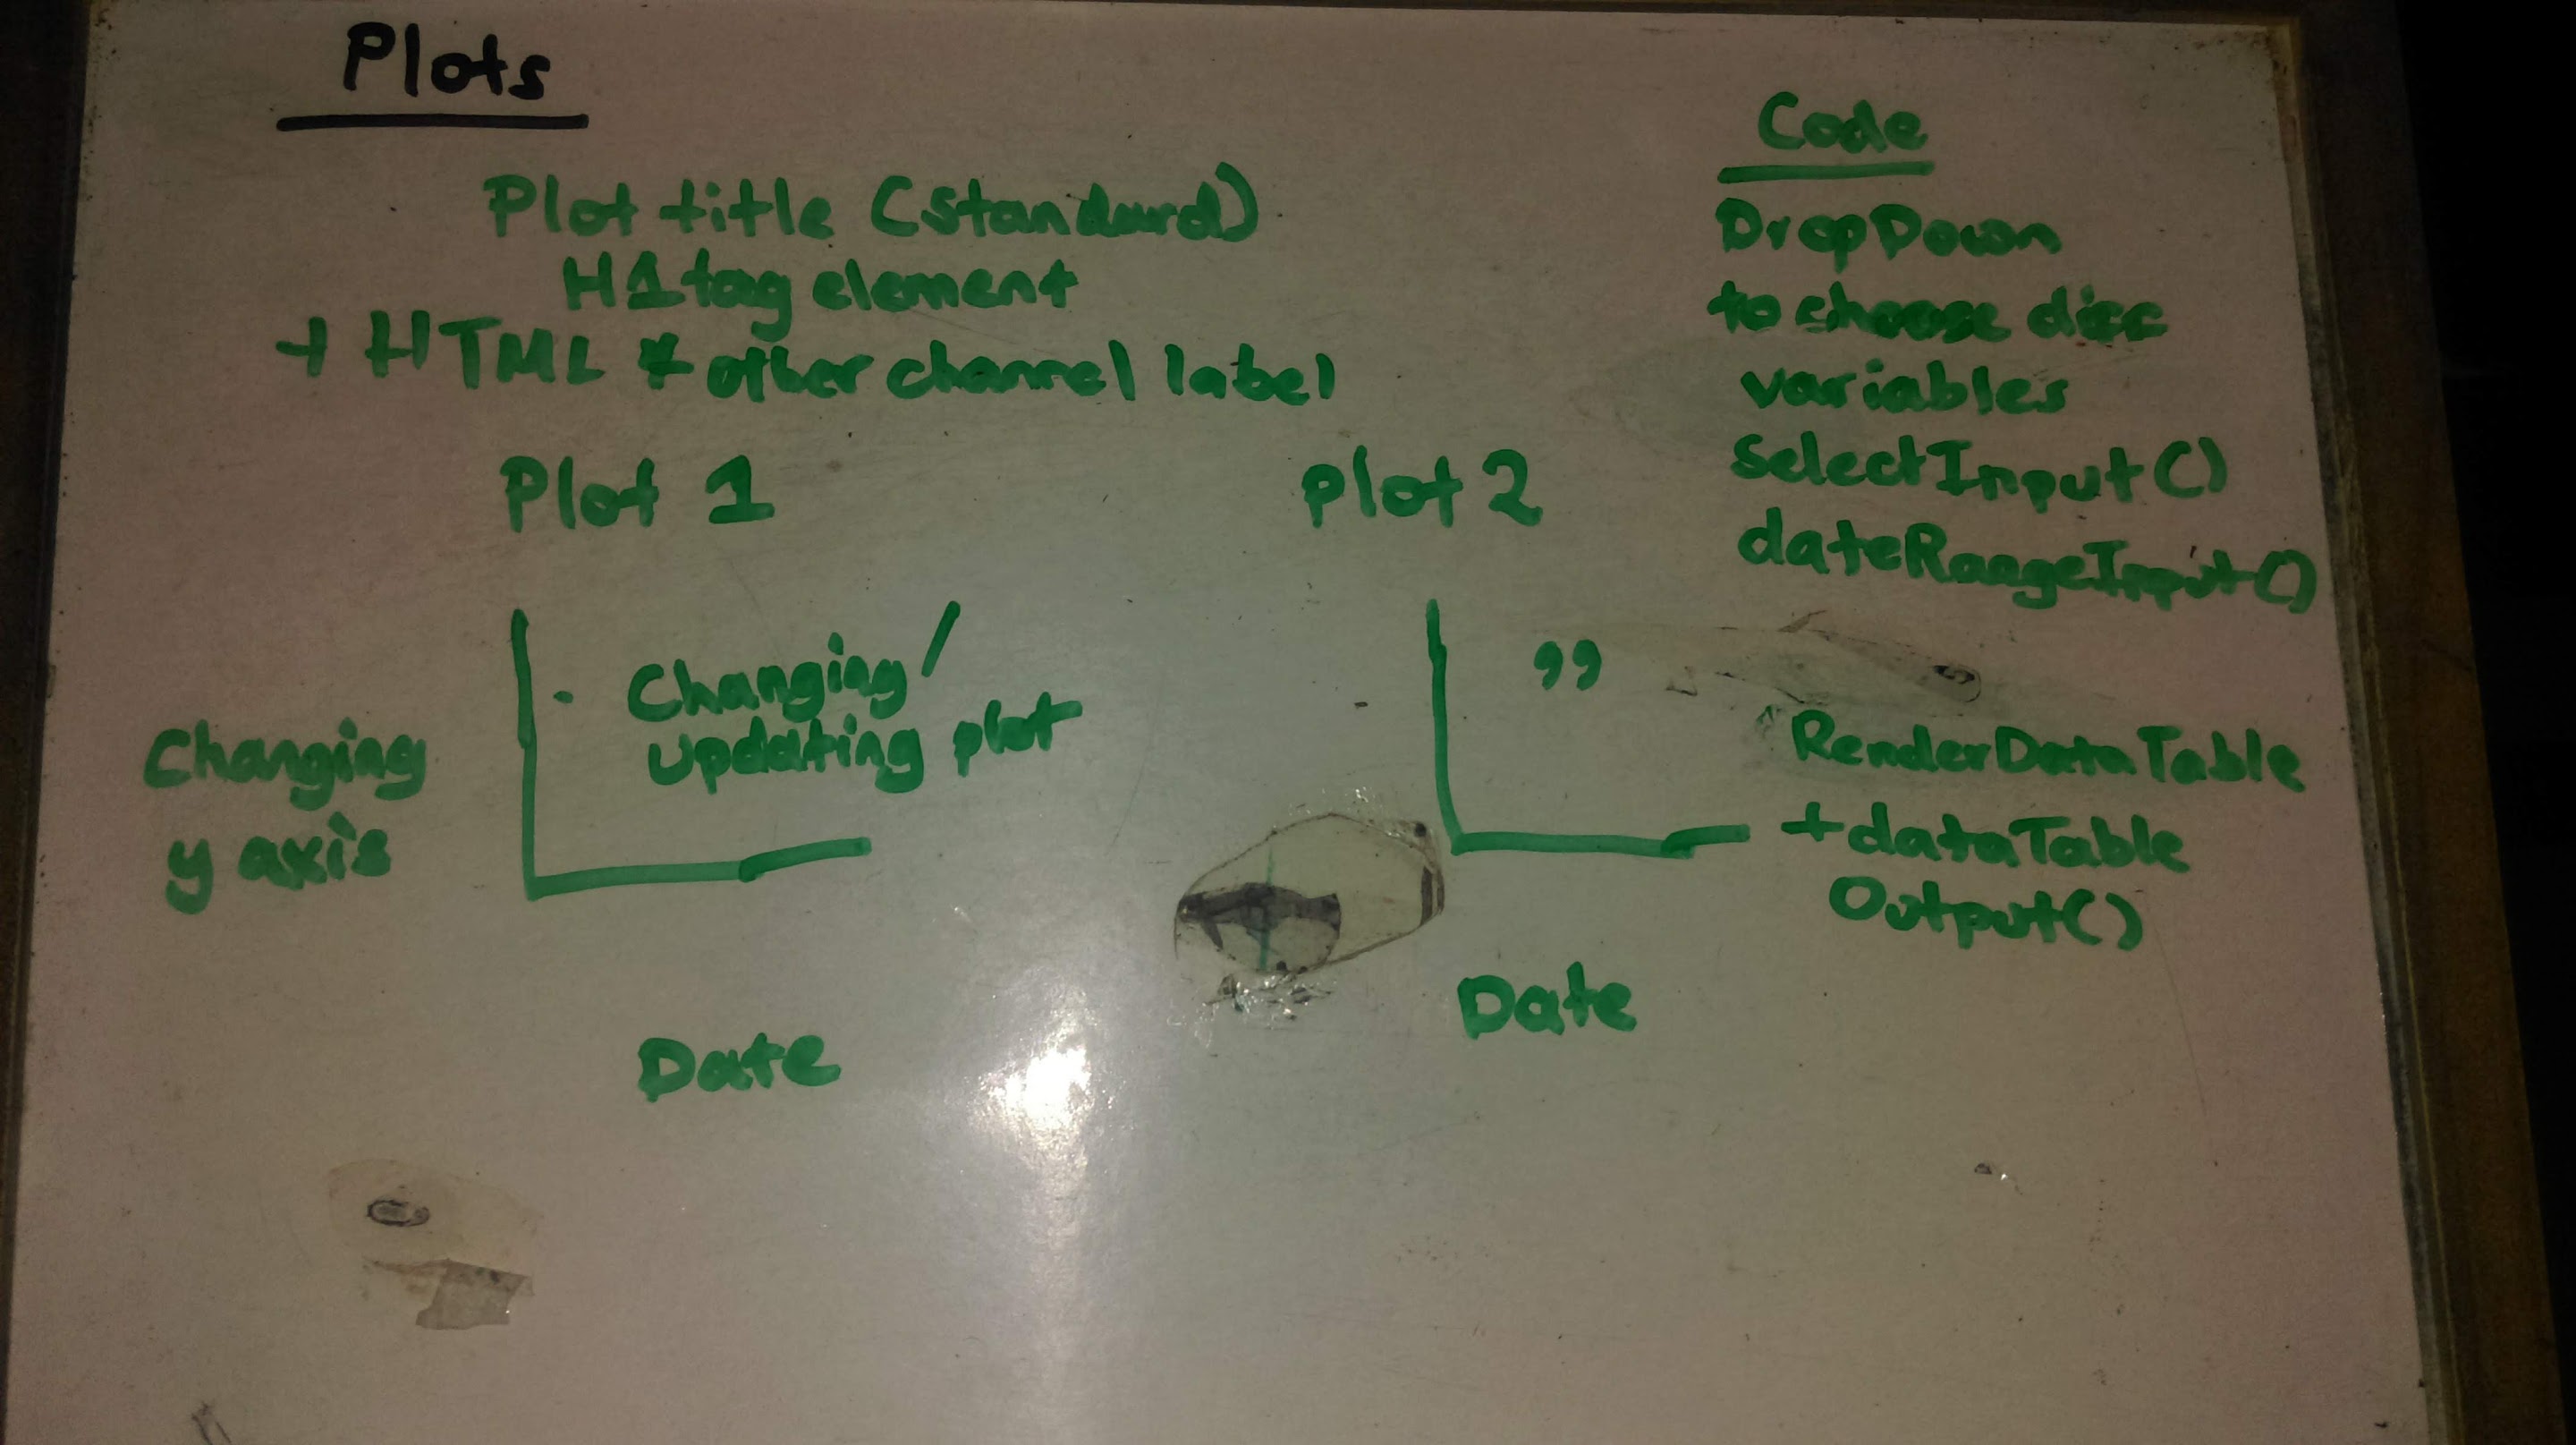 Plots
Plot title (standard)
H1 tag element
+ HTML * other channel label
Plot 1
Changing/
updating plot
Changing
y axis
Date
Plot 2
,,
Date
Code
DropDown
to choose disc
variables
SelectInput()
dateRangeInput()
RenderDataTable
+ dataTable
Output()